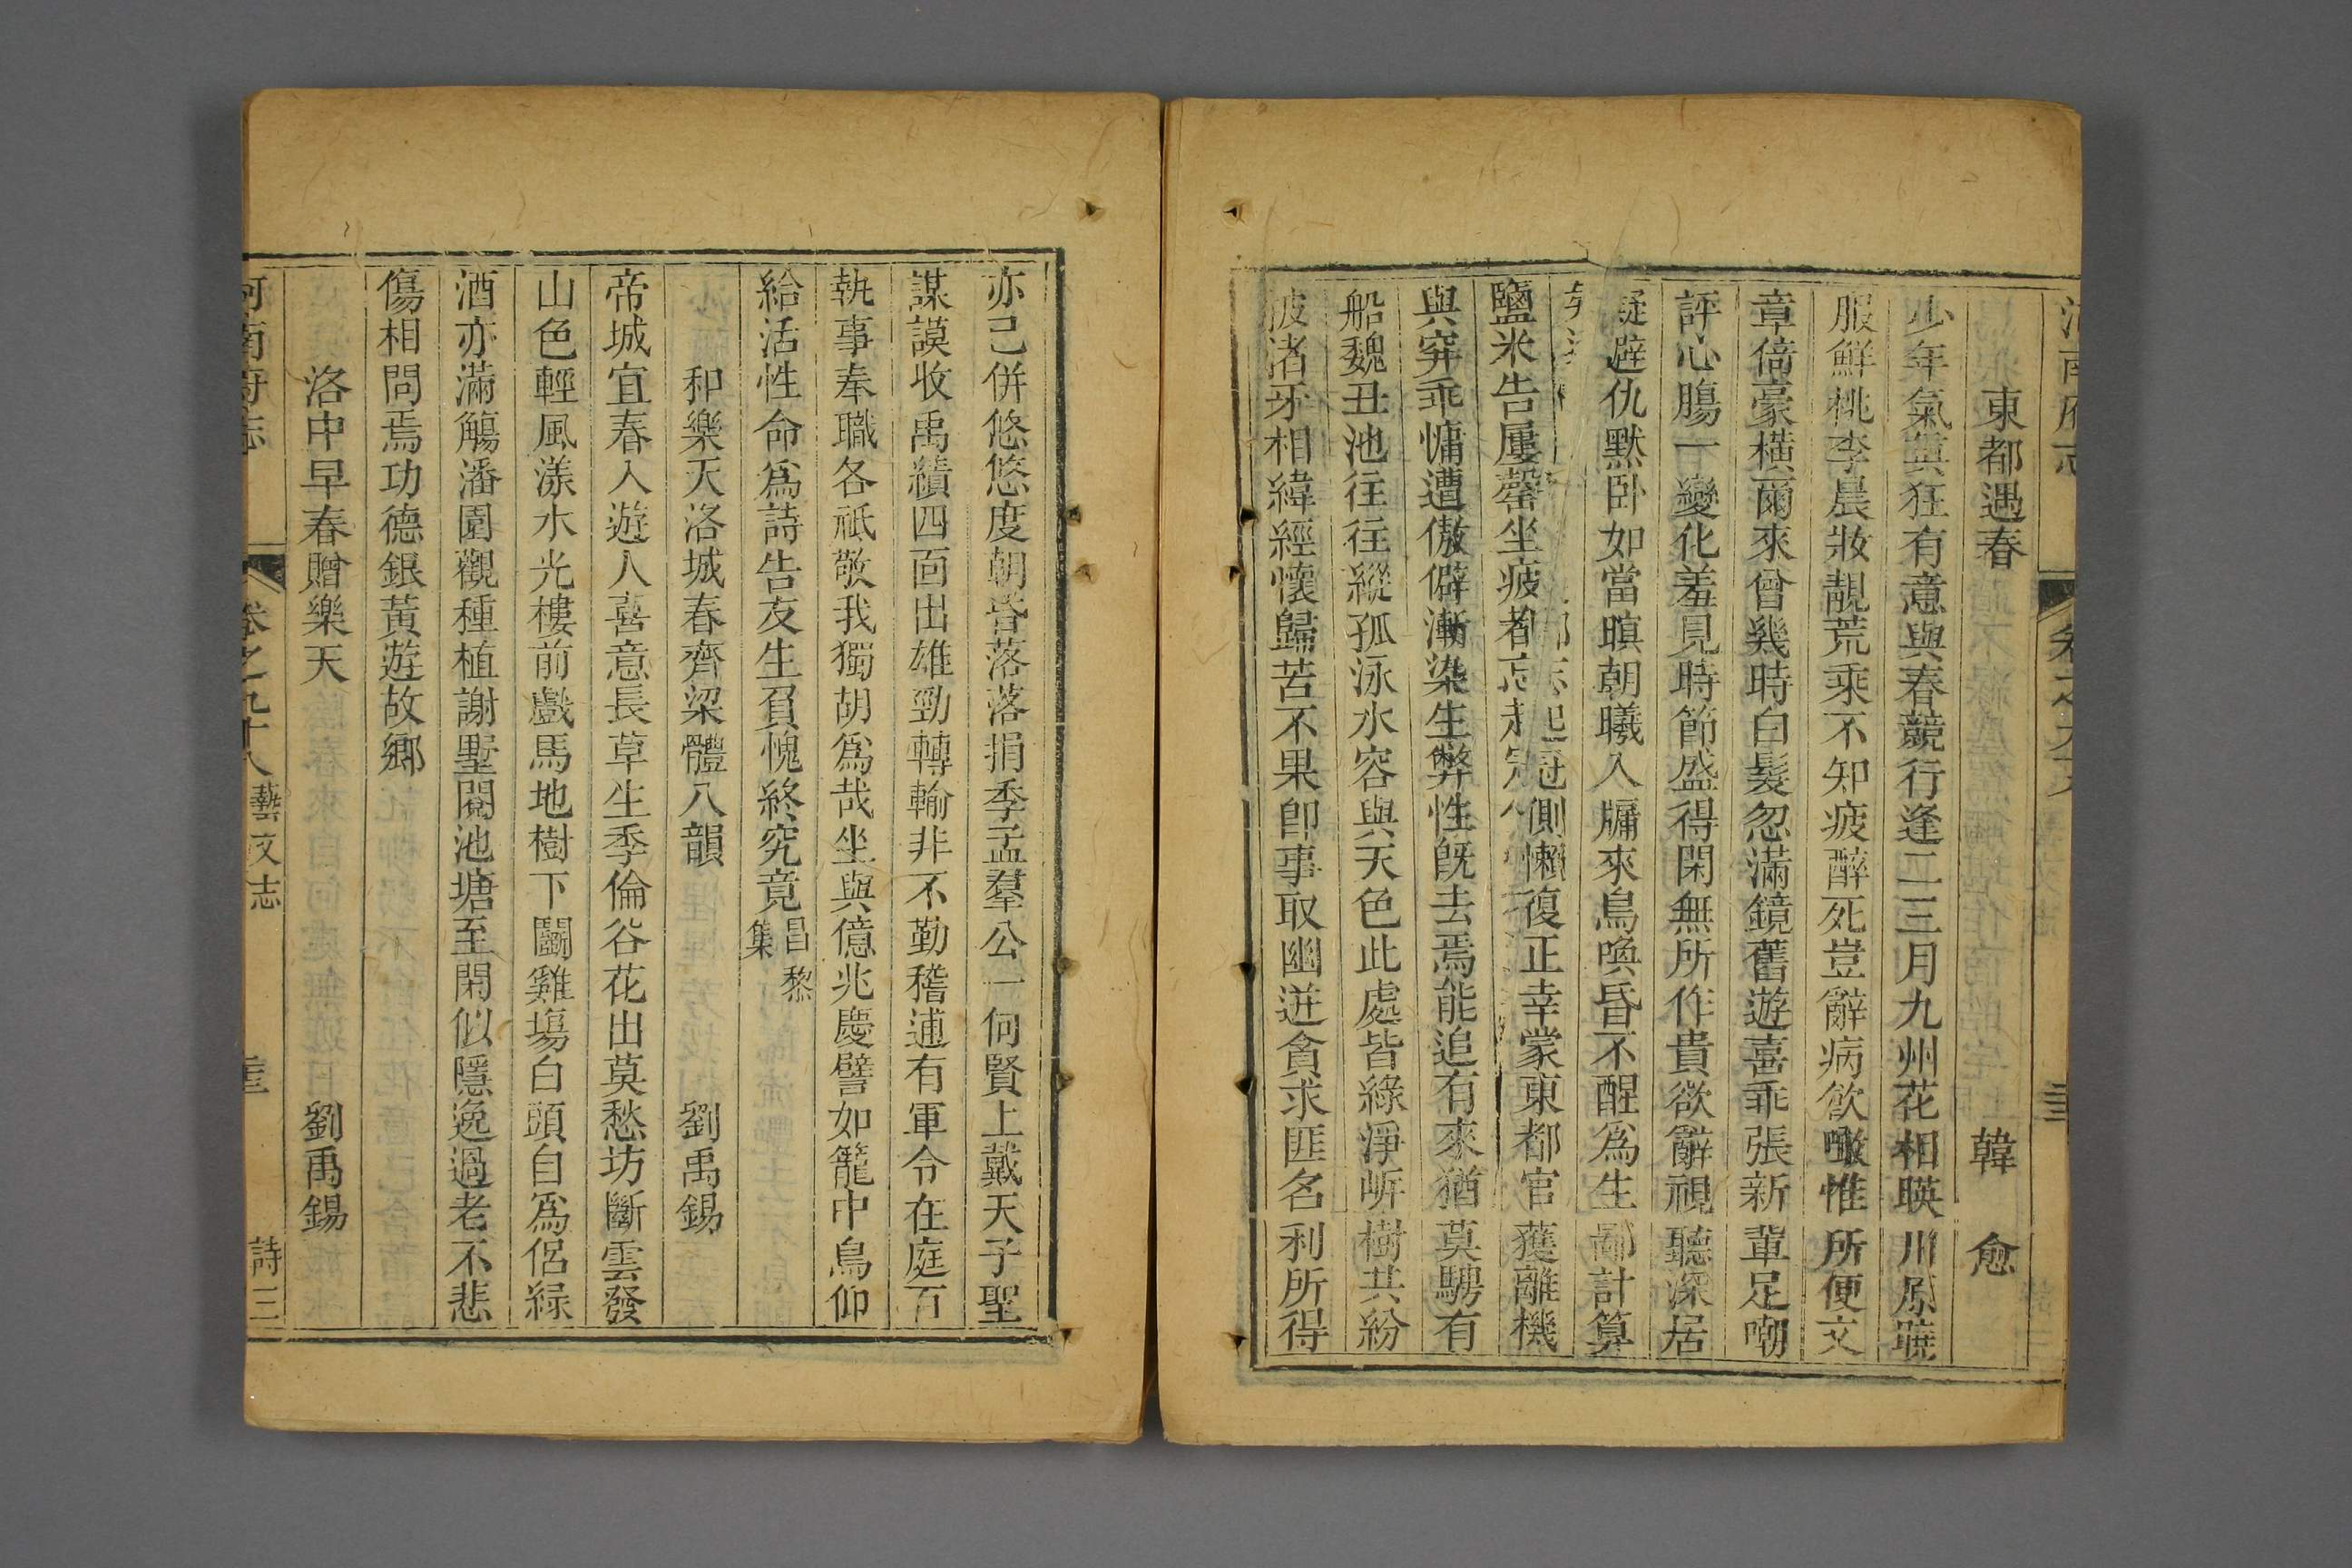 河南府志
東都遇春 韓愈
少年氣真狂有意與春競行逢二三月九州花相暎川原曉
服鮮桃李晨妝靚荒乘不知疲醉死豈辭病飲噉惟所便文
章倚豪橫爾來曾幾時白髮忽滿鏡舊遊喜乖張新輩足嘲
評心腸一變化羞見時節盛得閑無所作貴欲辭視聽深居
疑避仇默卧如當瞑朝曦入牖來鳥喚昏不醒為生鄙計算
鹽米告屢罄坐疲都忘起冠側懶復正幸蒙東都官獲離機
與穽乖慵遭傲僻漸染生弊性旣去焉能追有來猶莫騁有
船魏丑池往往縱孤泳水容與天色此處皆綠淨㟁樹共紛
披渚牙相緯經懷歸苦不果卽事取幽迸貪求匪名利所得
亦已併悠悠度朝昏落落捐季孟羣公一何賢上戴天子聖
謀謨收禹績四靣出雄勁轉輸非不勤稽逋有軍令在庭百
執事奉職各祗敬我獨胡為哉坐與億兆慶譬如籠中鳥仰
給活性命為詩告友生負愧終究竟昌黎集
和樂天洛城春齊梁體八韻 劉禹錫
帝城宜春入遊人喜意長草生季倫谷花出莫愁坊斷雲發
山色輕風漾水光樓前戲馬地樹下鬬雞塲白頭自為侶緑
酒亦滿觴潘園觀種植謝墅閱池塘至閑似隱逸過老不悲
傷相問焉功德銀黃遊故鄉
洛中早春贈樂天 劉禹錫
河南府志 卷之九十八 藝文志 詩三